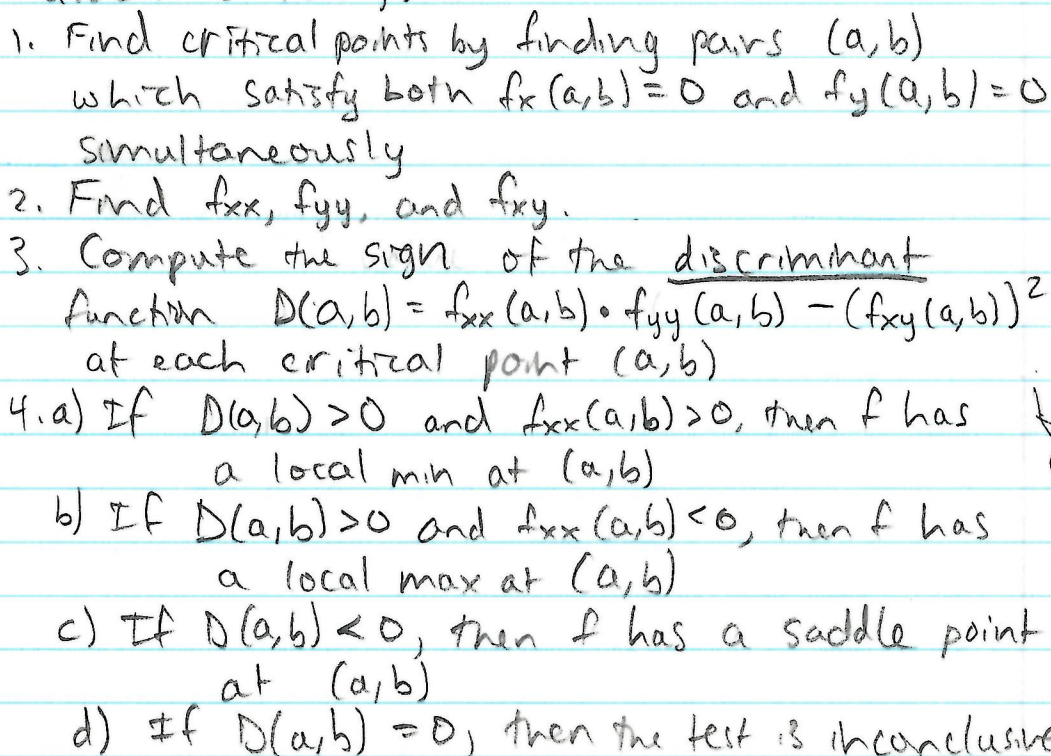 1. Find critical points by finding pairs (a,b)
which satisfy both fx(a,b)=0 and fy(a,b)=0
simultaneously
2. Find fxx, fyy, and fxy.
3. Compute the sign of the discriminant
function D(a,b) = fxx(a,b) • fyy(a,b) - (fxy(a,b))²
at each critical point (a,b)
4. a) If D(a,b) > 0 and fxx(a,b) > 0, then f has
a local min at (a,b)
b) If D(a,b) > 0 and fxx(a,b) < 0, then f has
a local max at (a,b)
c) If D(a,b) < 0, then f has a saddle point
at (a,b)
d) If D(a,b) = 0, then the test is inconclusive